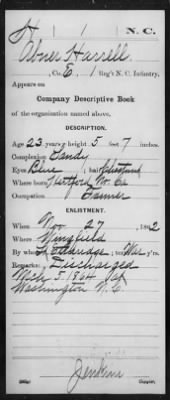 H | 1 | N. C.
Abner Harrell
, Co. E, 1 Reg't N. C. Infantry.
Appears on
Company Descriptive Book
of the organization named above.
DESCRIPTION.
Age 23 years; height 5 feet 7 inches.
Complexion Sandy
Eyes Blue ; hair
Where born Hertford N. C.
Occupation Farmer
ENLISTMENT.
When Nov 27 , 1862
Where Wingfield
By whom Etheridge ; term War y'rs.
Remarks: Discharged
Mch 5. 1864
Washington N. C
Jenkins